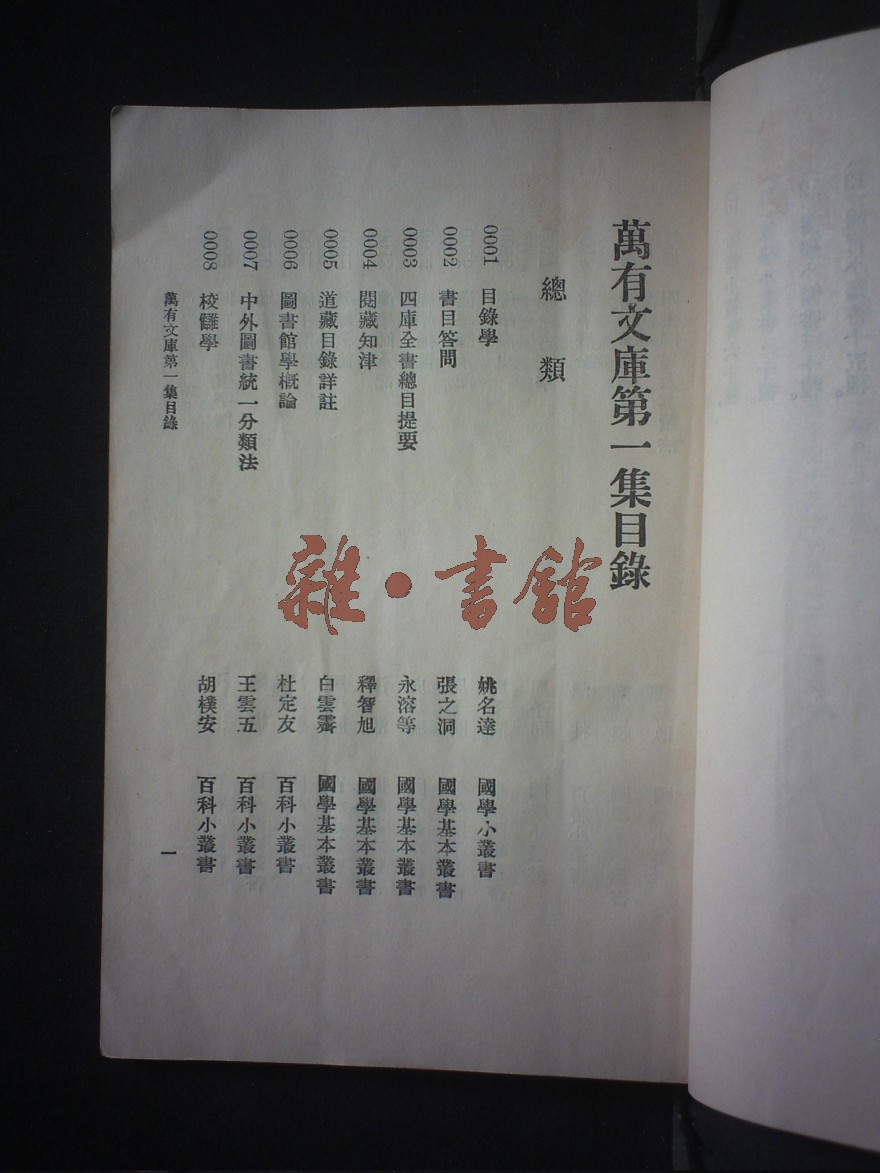 萬有文庫第一集目錄
總類
0001 目錄學 姚名達 國學小叢書
0002 書目答問 張之洞 國學基本叢書
0003 四庫全書總目提要 永溶等 國學基本叢書
0004 閱藏知津 釋智旭 國學基本叢書
0005 道藏目錄詳註 白雲霽 國學基本叢書
0006 圖書館學概論 杜定友 百科小叢書
0007 中外圖書統一分類法 王雲五 百科小叢書
0008 校讎學 胡樸安 百科小叢書
萬有文庫第一集目錄 一
雜·書館